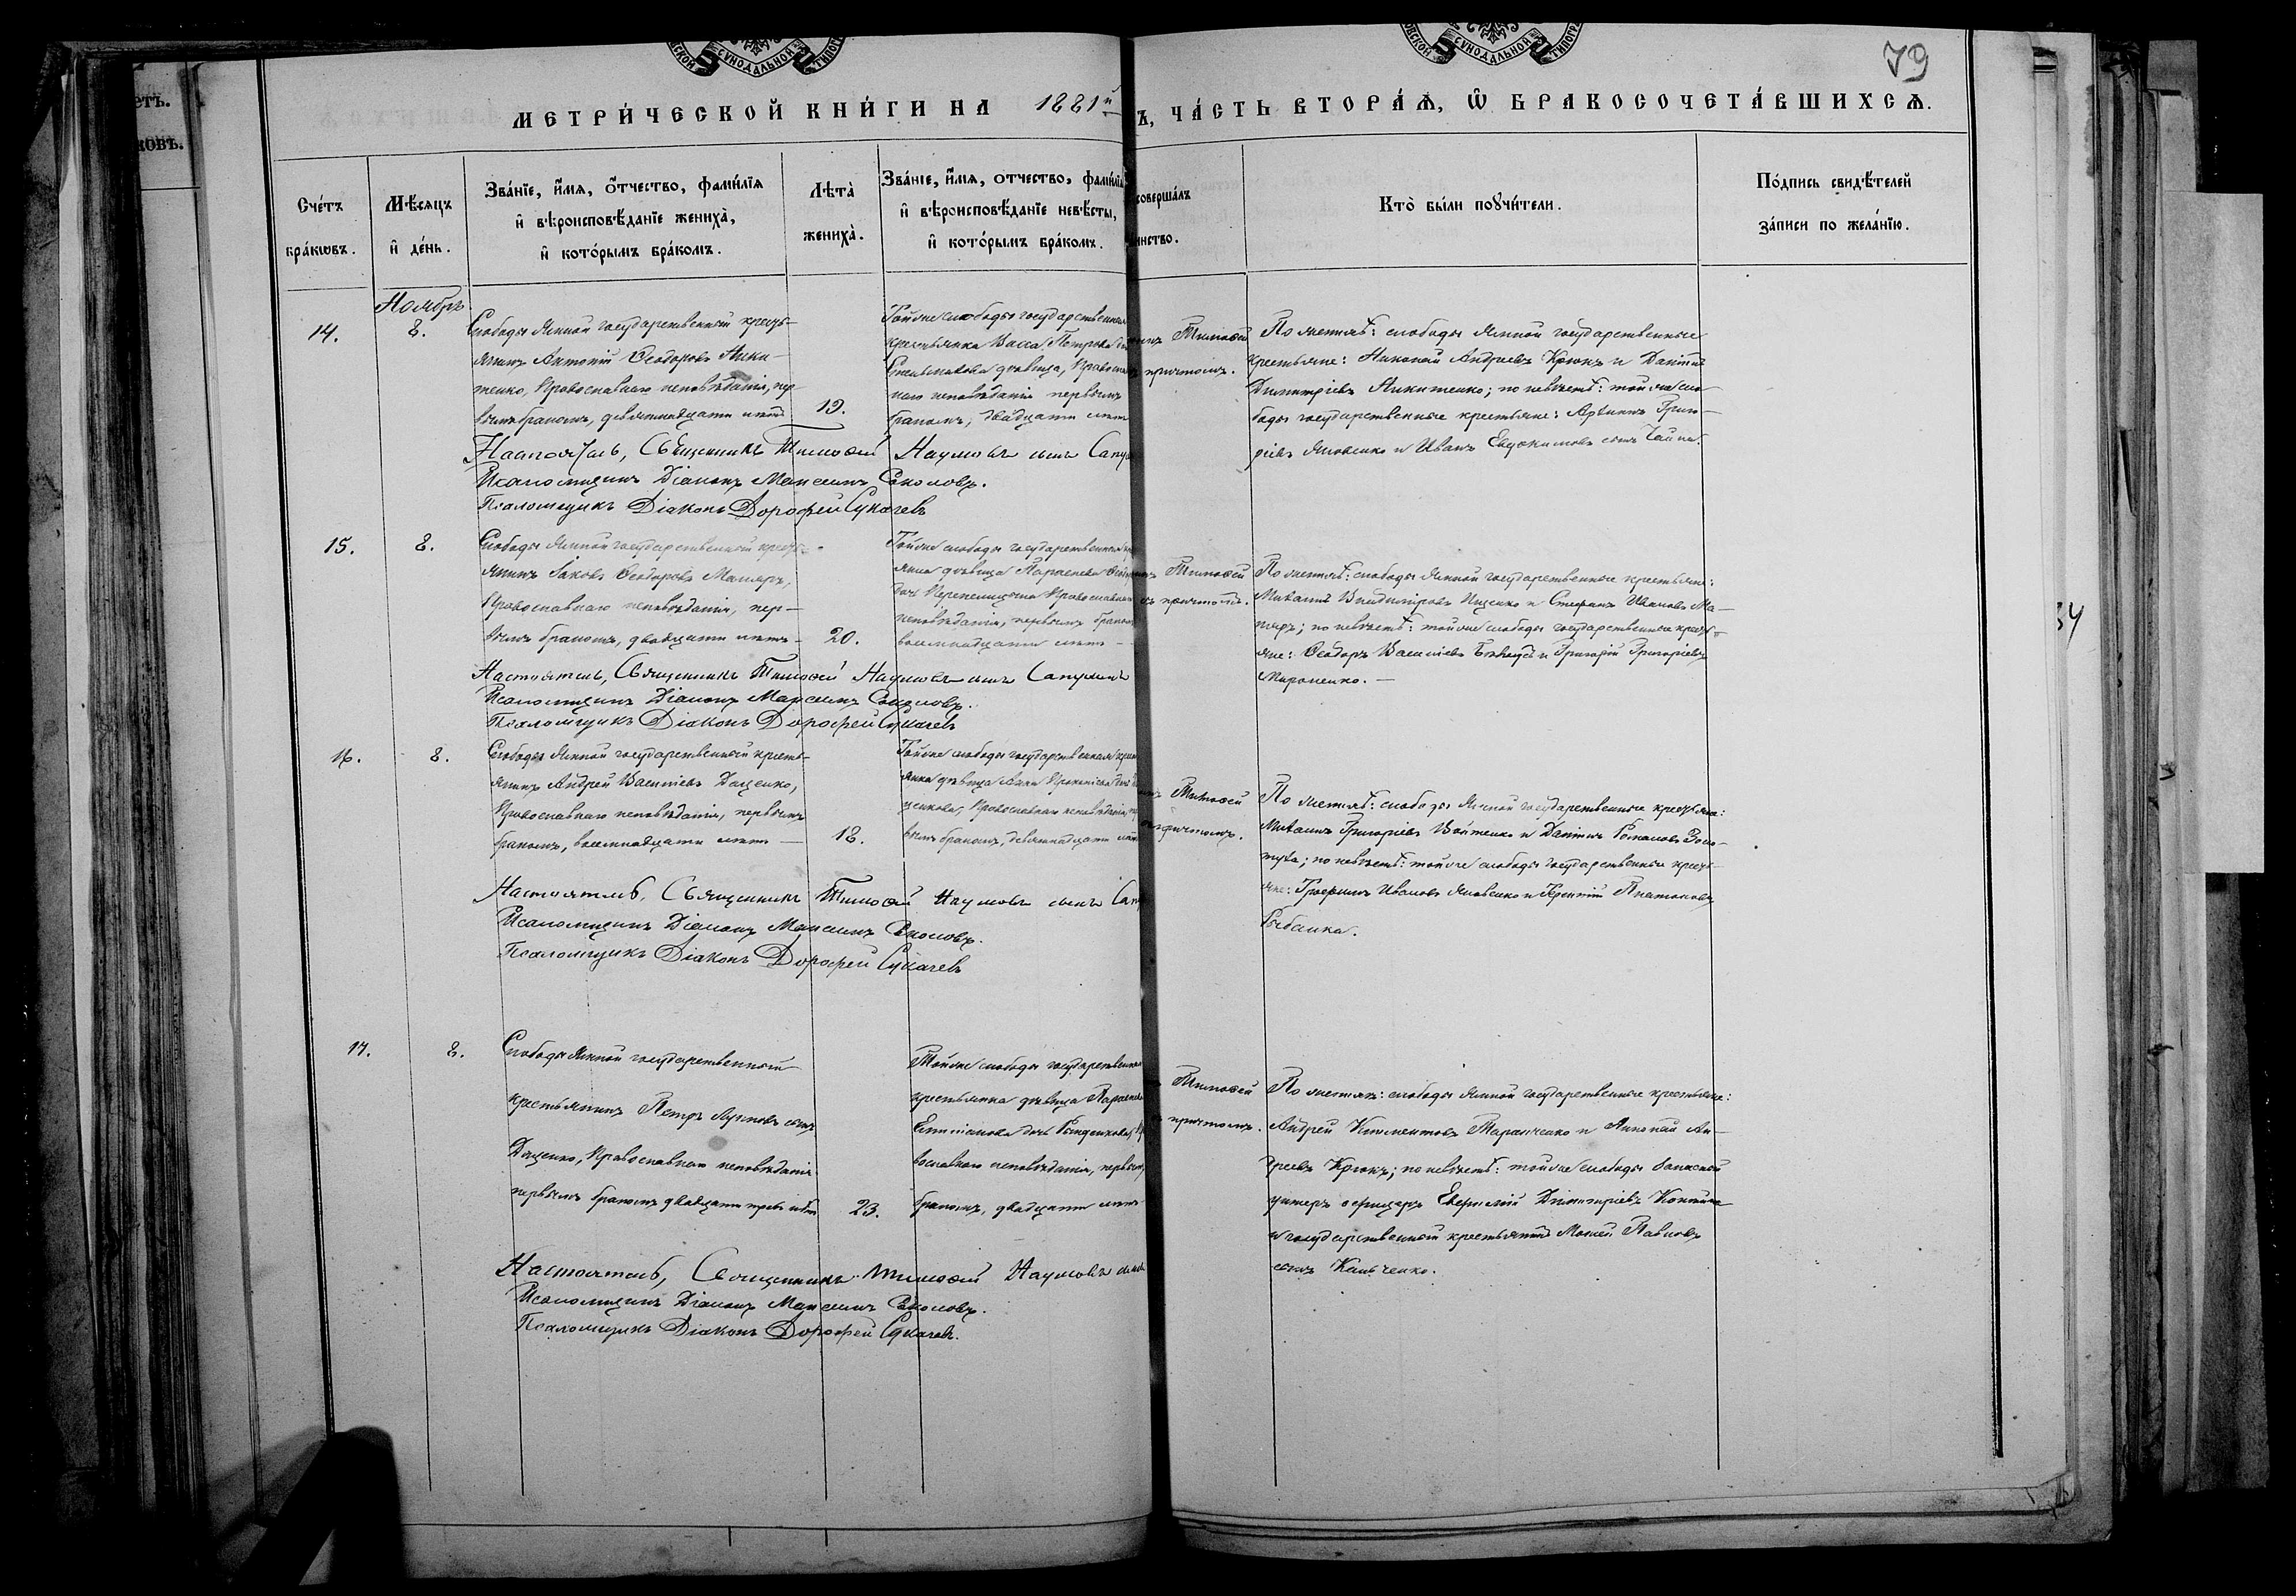 79
МЕТРИ́ЧЕСКОЙ КНИ́ГИ НА 1881й
Ъ, ЧА́СТЬ ВТОРА́Ѧ, Ѡ БРАКОСОЧЕТА́ВШИХСѦ.
Сче́тъ бра́кѡвъ.
Мѣ́сяцъ и҆ де́нь.
Зва́нїе, и҆́мя, ѻ҆́тчество, фами́лїя
и҆ вѣроисповѣ́данїе жениха̀,
и҆ кото́рымъ бра́комъ.
Лѣта̀ жениха̀.
Зва́нїе, и҆́мя, отчество, фами́лїя
и҆ вѣроисповѣ́данїе невѣ́сты,
и҆ кото́рымъ бра́комъ.
соверша́лъ
инство.
Кто̀ бы́ли поꙋчи́тели.
По́дпись свидѣ́телей
за́писи по жела́нїю.
Ноябрь
14.
8.
Слободы Ямной государственный кресть-
янинъ Антоній Ѳеодоровъ Ники-
тенко, Православнаго исповѣданія, пер-
вымъ бракомъ, девятнадцати лѣтъ
19.
Тойже слободы государственная
крестьянка Васса Петрова
дѣвица, Православ
наго исповѣданія первымъ
бракомъ, двадцати лѣтъ
Тимоѳей
причтомъ.
По женихѣ: слободы Ямной государственные
крестьяне: Никонай Андреевъ Крюкъ и Даніилъ
Димитріевъ Никитенко; по невѣстѣ: тойже сло-
боды государственные крестьяне: Архипъ Григо-
ріевъ Яковенко и Иванъ Евдокимовъ сынъ
Настоятель, Священникъ Тимоѳей Наумовъ сынъ
Псаломщикъ Діаконъ Максимъ Соколовъ.
Псаломщикъ Діаконъ Дорофей Сукачевъ
15.
8.
Слободы Ямной государственный кресть-
янинъ Іаковъ Ѳеодоровъ Маляръ,
Православнаго исповѣданія, пер-
вымъ бракомъ, двадцати лѣтъ
20.
Тойже слободы государственная
янка дѣвица Параскева
дочь Перепелицына Православнаго
исповѣданія, первымъ бракомъ
восемнадцати лѣтъ
Тимоѳей
причтомъ.
По женихѣ: слободы Ямной государственные крестьяне:
Михаилъ Владиміровъ Ищенко и Стефанъ Ивановъ Ма-
ляръ; по невѣстѣ: тойже слободы государственные кресть-
яне: Ѳеодоръ Васильевъ и Григорій Григоріевъ
Мироненко.
Настоятель, Священникъ Тимоѳей Наумовъ сынъ
Псаломщикъ Діаконъ Максимъ Соколовъ.
Псаломщикъ Діаконъ Дорофей Сукачевъ
16.
8.
Слободы Ямной государственный кресть-
янинъ Андрей Васильевъ Даценко,
Православнаго исповѣданія, первымъ
бракомъ, восемнадцати лѣтъ
18.
Тойже слободы государственная
янка дѣвица Анна Прокопіева дочь
Православнаго исповѣданія,
вымъ бракомъ, девятнадцати лѣтъ
Тимоѳей
причтомъ.
По женихѣ: слободы Ямной государственные крестьяне:
Михаилъ Григоріевъ Войтенко и Даніилъ Романовъ Золо-
туха; по невѣстѣ: тойже слободы государственные кресть-
яне: Трофимъ Ивановъ Яковенко и Терентій Платоновъ
Рыбалка.
Настоятель, Священникъ Тимоѳей Наумовъ сынъ
Псаломщикъ Діаконъ Максимъ Соколовъ.
Псаломщикъ Діаконъ Дорофей Сукачевъ
17.
8.
Слободы Ямной государственный
крестьянинъ Петръ Лукіновъ сынъ
Даценко, Православнаго исповѣданія
первымъ бракомъ двадцати трехъ лѣтъ
23.
Тойже слободы государственная
крестьянка дѣвица Параскева
дочь
вославнаго исповѣданія, первымъ
бракомъ, двадцати лѣтъ
Тимоѳей
причтомъ.
По женихѣ: слободы Ямной государственные крестьяне:
Андрей Климентовъ Таранченко и Никонай Ан-
дреевъ Крюкъ; по невѣстѣ: тойже слободы запасной
унтеръ офицеръ Димитріевъ
и государственный крестьянинъ Моисей Павловъ
сынъ Кальченко.
Настоятель, Священникъ Тимоѳей Наумовъ сынъ
Псаломщикъ Діаконъ Максимъ Соколовъ.
Псаломщикъ Діаконъ Дорофей Сукачевъ.